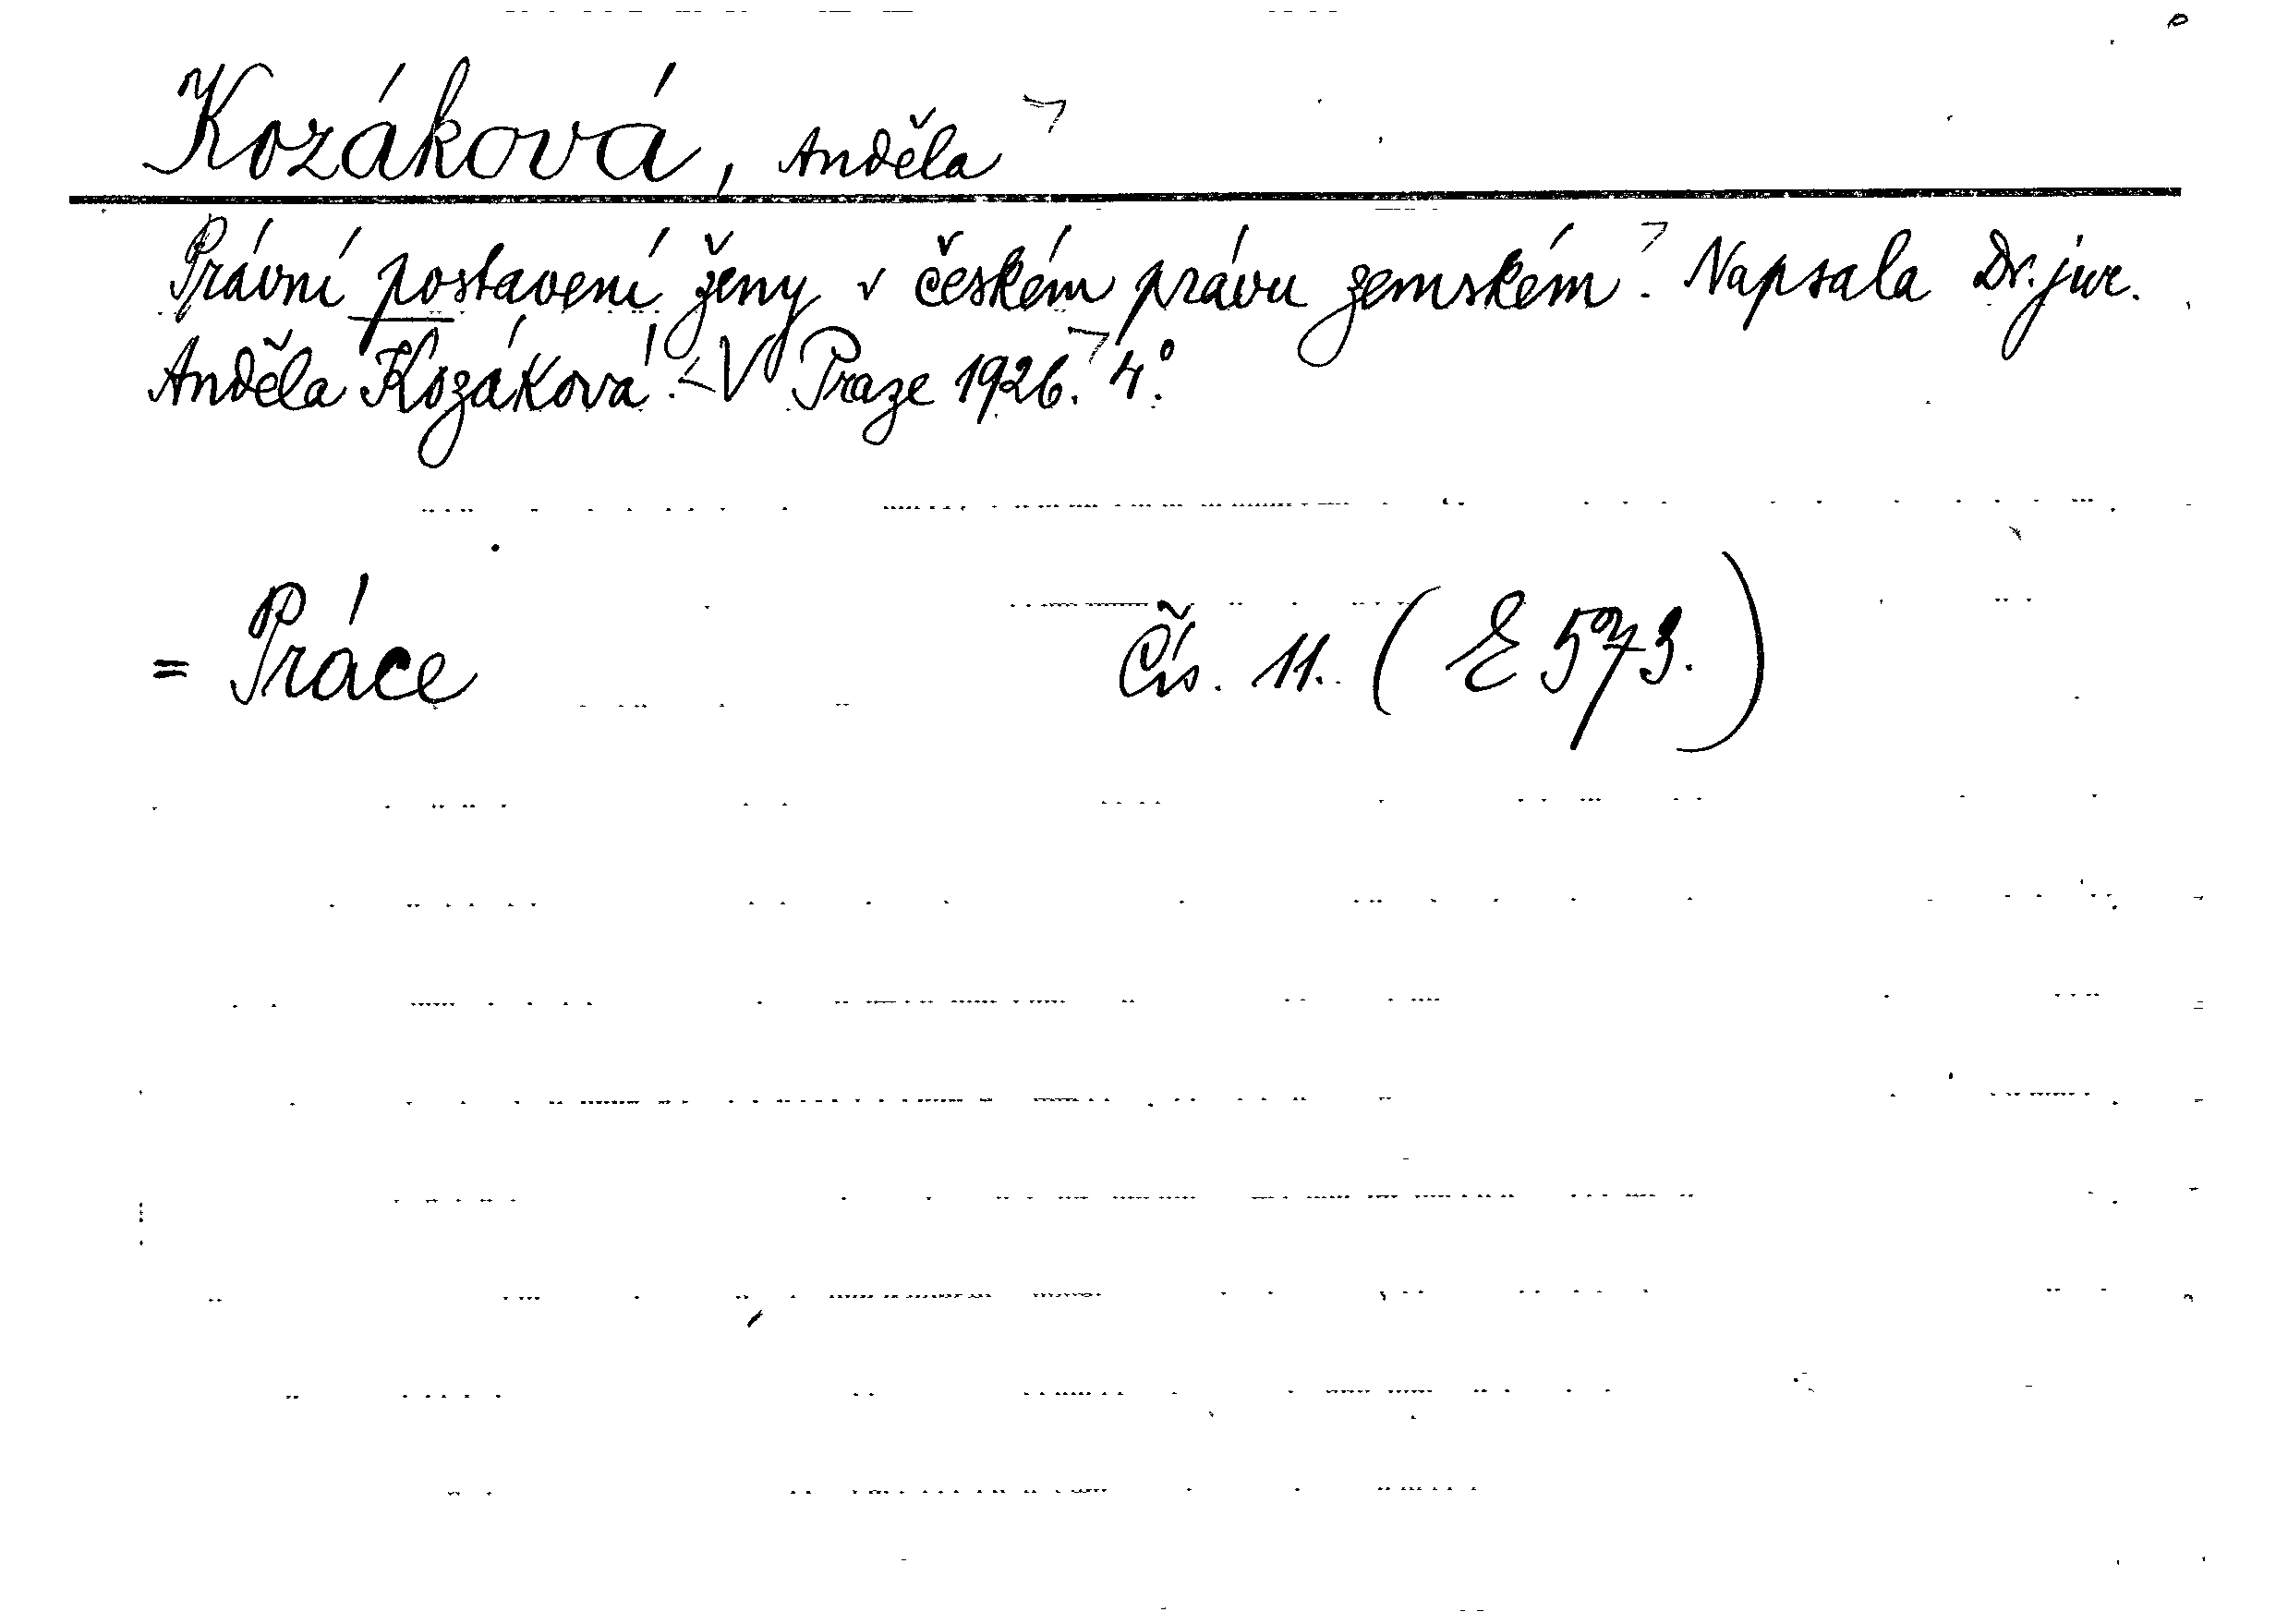 Kozáková, Anděla
Právní postavení ženy v českém právu zemském. Napsala Dr. jur.
Anděla Kozáková. V Praze 1926. 4°.
= Práce Čís. 11. (E 573.)